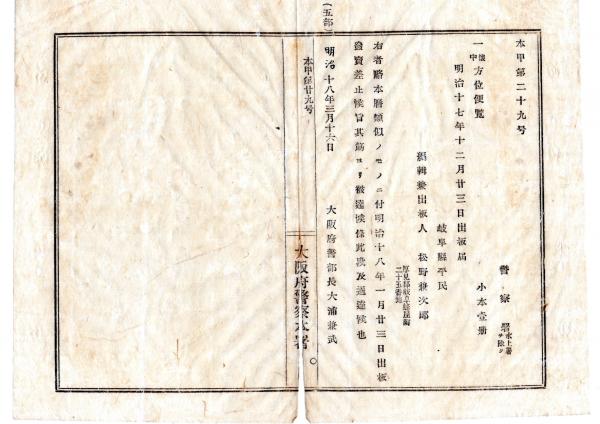 本甲第二十九号
警察署 水上署ヲ除ク
一 懐中 方位便覧 小本壹册
明治十七年十二月廿三日出板届
岐阜縣平民
編輯兼出板人 松野兼次郎
二十五番
右者略本曆類似ノモノニ付明治十八年一月廿三日出板
發賣差止候旨其筋ヨリ被達候條此段及通達候也
明治十八年三月十六日
大阪府警部長大浦兼武
(五部)
本甲第廿九号
大阪府警察本署